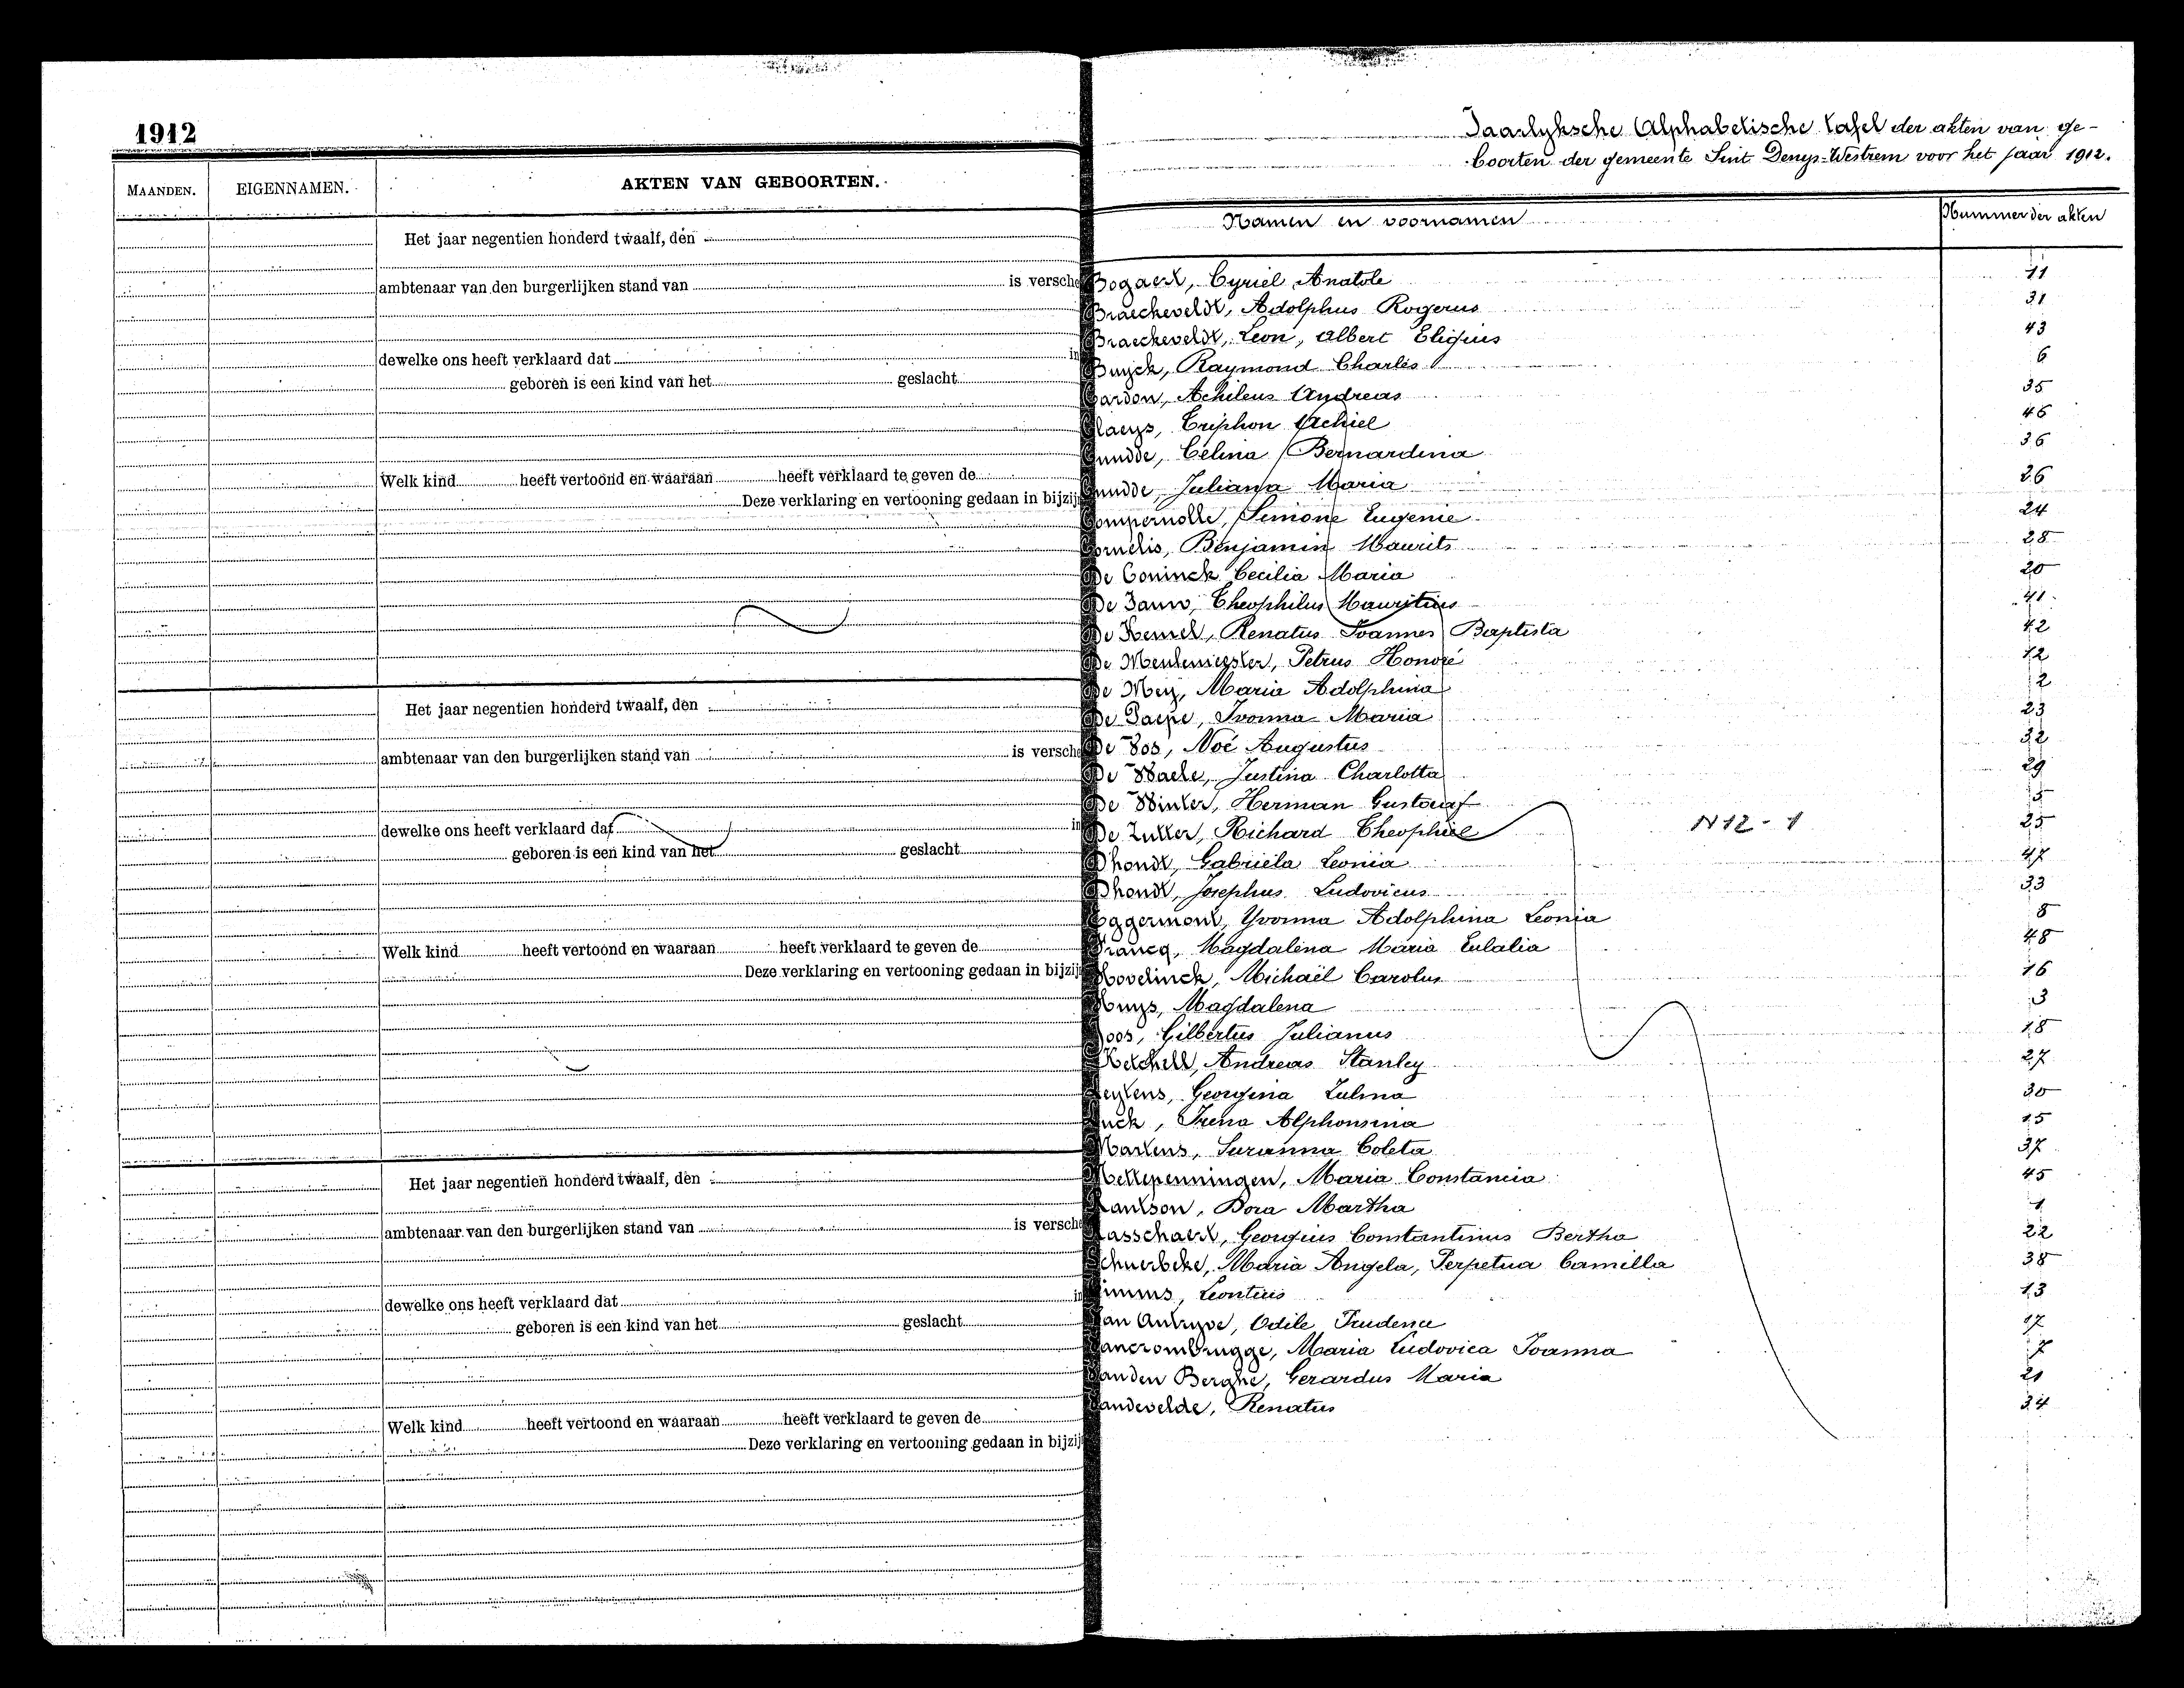 1912
MAANDEN. EIGENNAMEN. AKTEN VAN GEBOORTEN.
Het jaar negentien honderd twaalf, den
ambtenaar van den burgerlijken stand van is versche
dewelke ons heeft verklaard dat in
geboren is een kind van het geslacht
Welk kind heeft vertoond en waaraan heeft verklaard te geven de
Deze verklaring en vertooning gedaan in bijzij
Het jaar negentien honderd twaalf, den
ambtenaar van den burgerlijken stand van is versche
dewelke ons heeft verklaard dat in
geboren is een kind van het geslacht
Welk kind heeft vertoond en waaraan heeft verklaard te geven de
Deze verklaring en vertooning gedaan in bijzij
Het jaar negentien honderd twaalf, den
ambtenaar van den burgerlijken stand van is versche
dewelke ons heeft verklaard dat in
geboren is een kind van het geslacht
Welk kind heeft vertoond en waaraan heeft verklaard te geven de
Deze verklaring en vertooning gedaan in bijzij
Jaarlyksche Alphabetische tafel der akten van ge-
boorten der gemeente Sint Denys-Westrem voor het jaar 1912.
Namen en voornamen Nummer der akten
Bogaert, Cyriel Anatole 11
Braeckeveldt, Adolphus Rogerus 31
Braeckeveldt, Leon, Albert Eligius 43
Buyck, Raymond Charles 6
Cardon, Achileus Andreas 35
Claeys, Triphon Achiel 46
Cnudde, Celina Bernardina 36
Cnudde, Juliana Maria 26
Compernolle, Simone Eugenie 24
Cornelis, Benjamin Maurits 28
De Coninck Cecilia Maria 20
De Jauw, Theophilus Mauritius 41
De Kemel, Renatus Joannes Baptista 42
De Meulemeester, Petrus Honoré 12
De Mey, Maria Adolphina 2
De Paepe, Ivonna Maria 23
De Vos, Noé Augustus 32
De Waele, Justina Charlotta 29
De Winter, Herman Gustaaf 5
De Zutter, Richard Theophiel N 12 - 1 25
Dhondt, Gabriela Leonia 47
Dhondt, Josephus Ludovicus 33
Eggermont, Yvonna Adolphina Leonia 8
Francq, Magdalena Maria Eulalia 48
Hovelinck, Michaël Carolus 16
Huys, Magdalena 3
Joos, Gilbertus Julianus 18
Ketchell, Andreas Stanley 27
Leytens, Georgina Zulma 30
Luck, Irena Alphonsina 15
Martens, Suzanna Coleta 37
Mettepenningen, Maria Constancia 45
Rantson, Dora Martha 1
Rasschaert, Georgius Constantinus Bertha 22
Schuerbeke, Maria Angela, Perpetua Camilla 38
Simms, Leontius 13
Van Autryve, Odile Prudence 17
Vancrombrugge, Maria Ludovica Joanna 7
Vanden Berghe, Gerardus Maria 21
Vandevelde, Renatus 34